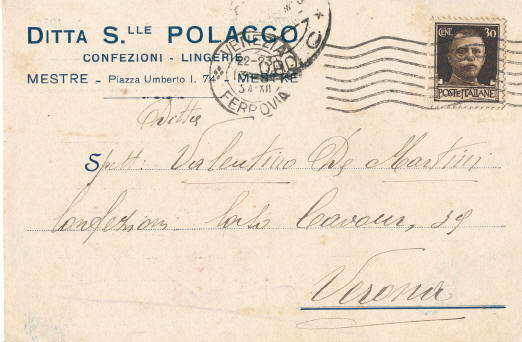 DITTA S.LLE POLACCO
CONFEZIONI - LINGERIE
MESTRE - Piazza Umberto I. 74 - MESTRE
VENEZIA
22-23
34 XII
FERROVIA
CENT. 30
POSTE ITALIANE
Ditta
Spett. Valentino De Martini
Confezioni Corso Cavour, 39
Verona